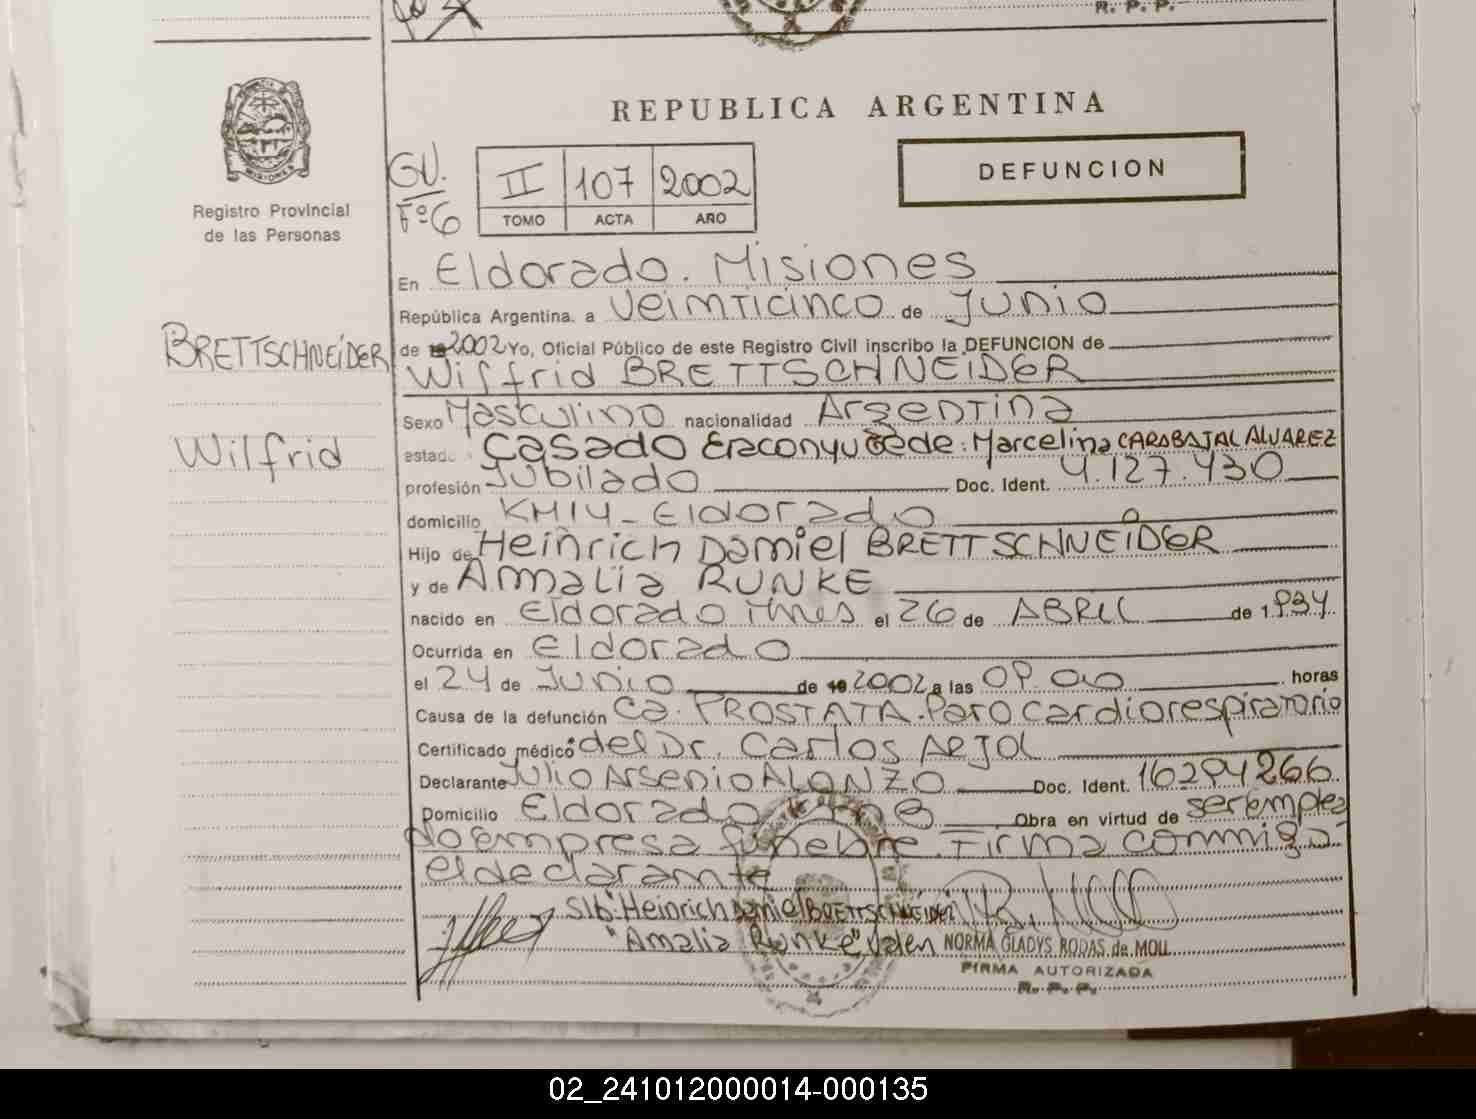 R. P. P.
REPUBLICA ARGENTINA
DEFUNCION
GV.
Fº6
II 107 2002
TOMO ACTA AÑO
MISIONES
Registro Provincial
de las Personas
BRETTSCHNEIDER
Wilfrid
En Eldorado. Misiones
República Argentina. a Veimticinco de Junio
de 2002 Yo, Oficial Público de este Registro Civil inscribo la DEFUNCION de
Wilfrid BRETTSCHNEIDER
Sexo Masculino nacionalidad Argentina
estado Casado Eraconyugede: Marcelina CARABAJAL ALVAREZ
profesión Jubilado Doc. Ident. 4.127.430
domicilio KM14_ Eldorado
Hijo de Heinrich Damiel BRETTSCHNEIDER
y de Amalia RUNKE
nacido en Eldorado mnes el 26 de ABRIL de 1.934
Ocurrida en Eldorado
el 24 de Junio de 19 2002 a las 09.00 horas
Causa de la defunción Ca. PROSTATA. Paro cardiorespiratorio
Certificado médico del Dr. Carlos ARJOL
Declarante Julio Arsenio ALONZO Doc. Ident. 16294266
Domicilio Eldorado Obra en virtud de ser emplea
do empresa funebre. Firma commigo
el declarante
S/b: Heinrich Damiel BRETTSCHNEIDER
"Amalia Runke" Valen NORMA GLADYS RODAS de MOLL
FIRMA AUTORIZADA
R. P. P.
02_241012000014-000135